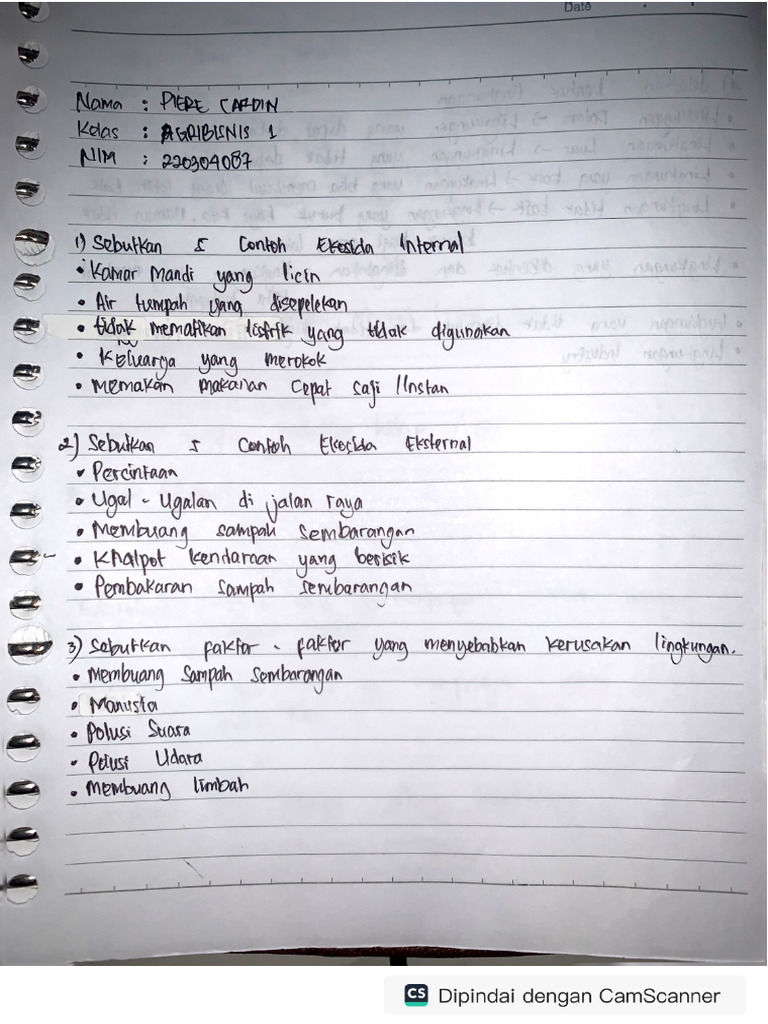 Date
Nama : PIERE CARDIN
Kelas : AGRIBISNIS 1
NIM : 220304087
1) Sebutkan 5 Contoh Ekosida Internal
• Kamar Mandi yang licin
• Air tumpah yang disepelekan
• tidak mematikan listrik yang tidak digunakan
• Keluarga yang merokok
• Memakan makanan Cepat saji / Instan
2) Sebutkan 5 Contoh Ekosida Eksternal
• Percintaan
• Ugal - Ugalan di jalan raya
• Membuang sampah sembarangan
• Khalpot kendaraan yang berisik
• Pembakaran sampah sembarangan
3) Sebutkan faktor - faktor yang menyebabkan kerusakan lingkungan.
• Membuang sampah sembarangan
• Manusia
• Polusi Suara
• Polusi Udara
• Membuang limbah
CS Dipindai dengan CamScanner